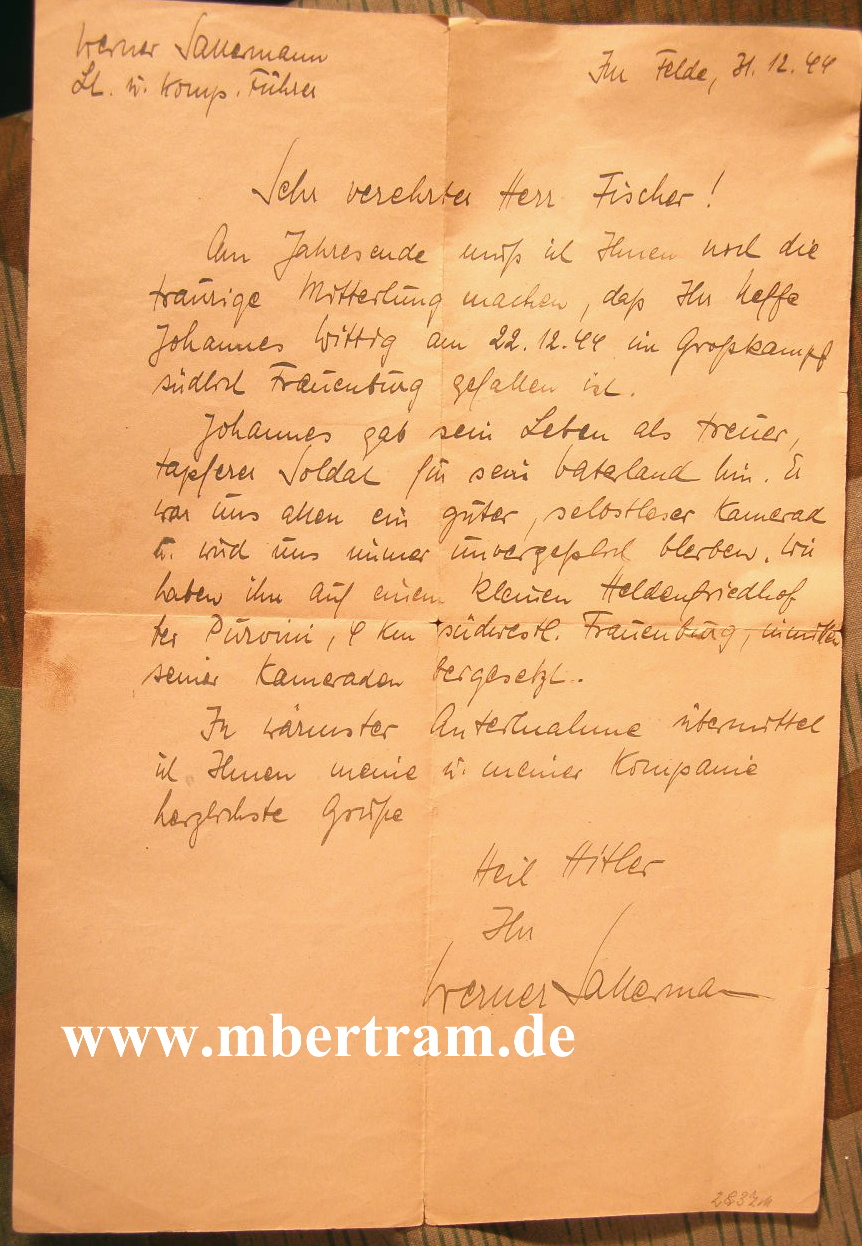 Werner Sauermann
Lt. u. Komp. Führer
Im Felde, 31.12.44
Sehr verehrter Herr Fischer!
Am Jahresende muß ich Ihnen noch die
traurige Mitteilung machen, daß Ihr Neffe
Johannes Wittig am 22.12.44 im Großkampf
südlich Frauenburg gefallen ist.
Johannes gab sein Leben als treuer,
tapferer Soldat für sein Vaterland hin. Er
war uns allen ein guter, selbstloser Kamerad
u. wird uns immer unvergeßlich bleiben. Wir
haben ihn auf einem kleinen Heldenfriedhof
4 km südwestl. Frauenburg, inmitten
seiner Kameraden beigesetzt.
In wärmster Anteilnahme übermittel
ich Ihnen meine u. meiner Kompanie
herzlichste Grüße
Heil Hitler
Ihr
Werner Sauermann
www.mbertram.de